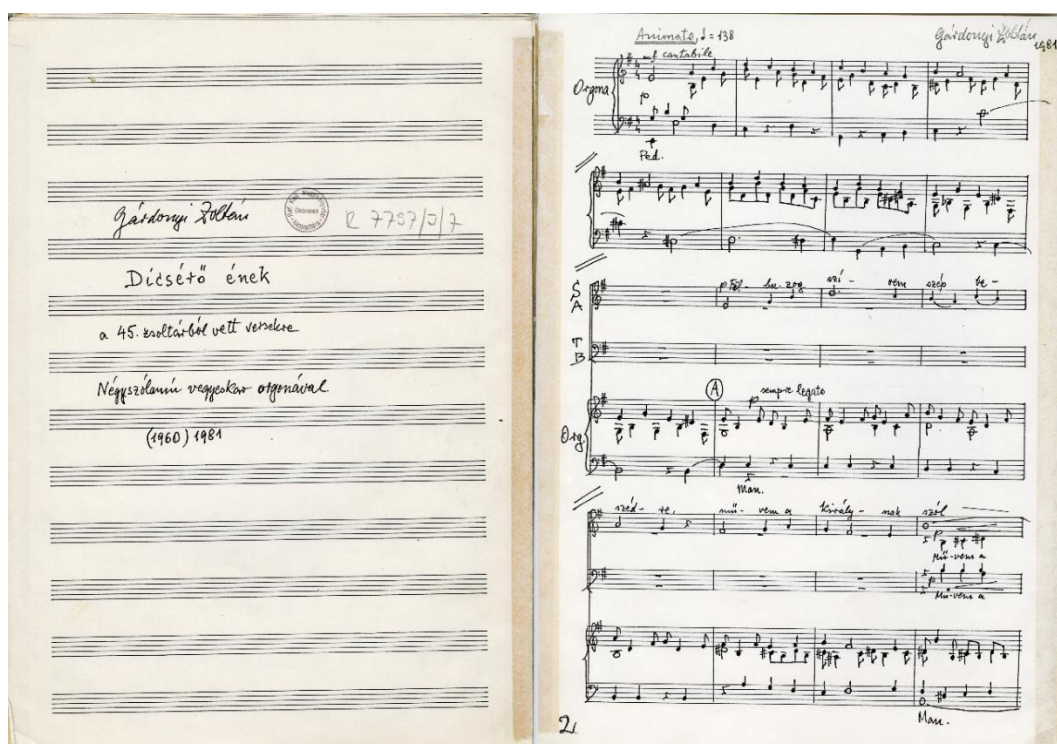 Gárdonyi Zoltán
R 7757/J/7
Dicsérő ének
a 45. zsoltárból vett versekre
Négyszólamú vegyeskar orgonával
(1960) 1981
Animato, ♩ = 138
Gárdonyi Zoltán
1981
mf cantabile
Orgona
Ped.
S
A
p Föl - bu-zog szí - vem szép be -
T
B
A
p sempre legato
Org.
Man.
széd - re, mű - vem a király - nak szól
p
Mű-vem a
p
Mű-vem a
Man.
2